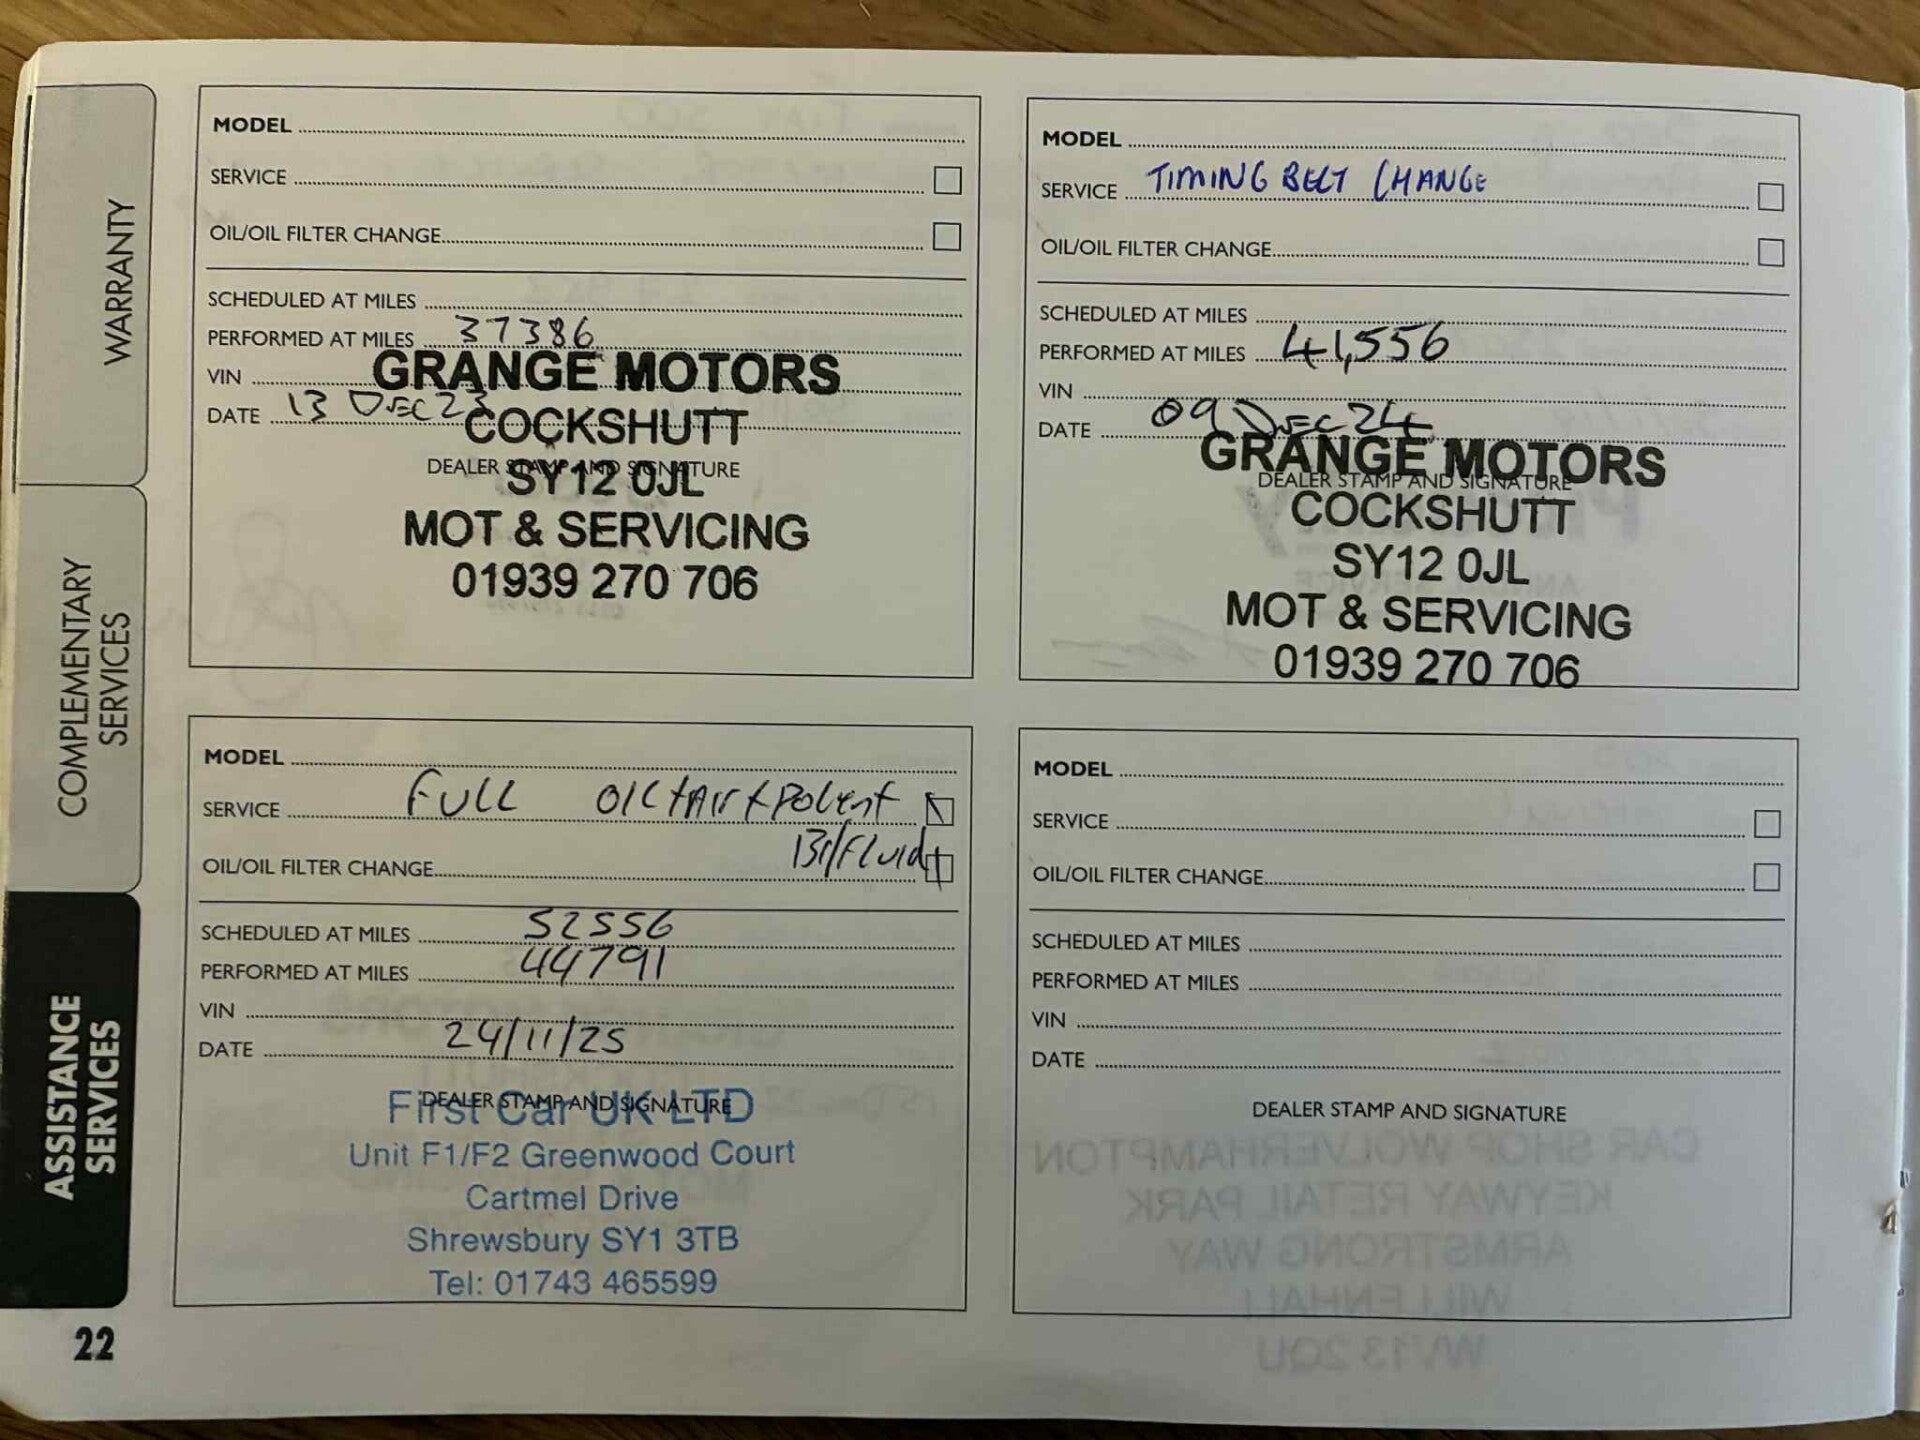 WARRANTY
COMPLEMENTARY
SERVICES
ASSISTANCE
SERVICES
22
MODEL
SERVICE
OIL/OIL FILTER CHANGE
SCHEDULED AT MILES
PERFORMED AT MILES 37386
VIN
DATE 13 DEC 23
DEALER STAMP AND SIGNATURE
GRANGE MOTORS
COCKSHUTT
SY12 0JL
MOT & SERVICING
01939 270 706
MODEL
SERVICE TIMING BELT CHANGE
OIL/OIL FILTER CHANGE
SCHEDULED AT MILES
PERFORMED AT MILES 41,556
VIN
DATE 09 DEC 24
DEALER STAMP AND SIGNATURE
GRANGE MOTORS
COCKSHUTT
SY12 0JL
MOT & SERVICING
01939 270 706
MODEL
SERVICE FULL OIL+Air+Pollent
Br/Fluid
OIL/OIL FILTER CHANGE
SCHEDULED AT MILES 52556
PERFORMED AT MILES 44791
VIN
DATE 24/11/25
DEALER STAMP AND SIGNATURE
First Car UK LTD
Unit F1/F2 Greenwood Court
Cartmel Drive
Shrewsbury SY1 3TB
Tel: 01743 465599
MODEL
SERVICE
OIL/OIL FILTER CHANGE
SCHEDULED AT MILES
PERFORMED AT MILES
VIN
DATE
DEALER STAMP AND SIGNATURE